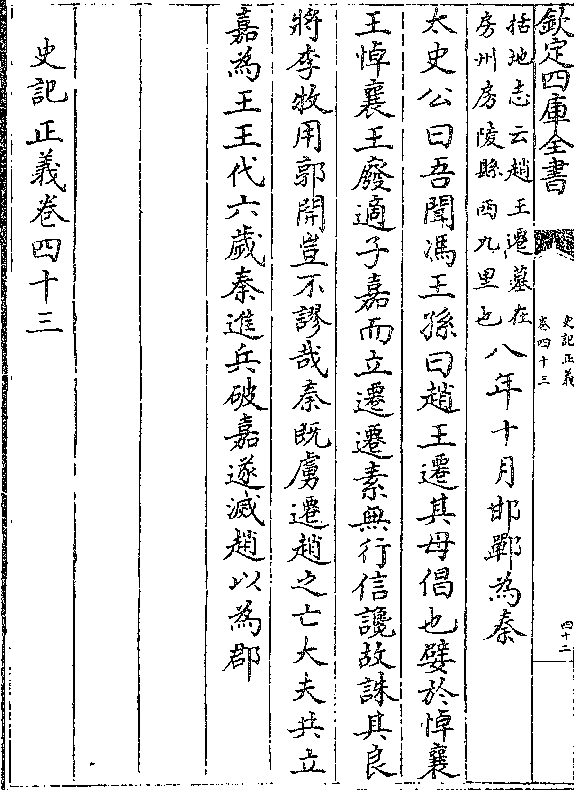 欽定四庫全書
史記正義
卷四十三
四十二
括地志云趙王遷墓在
房州房陵縣西九里也
八年十月邯鄲為秦
太史公曰吾聞馮王孫曰趙王遷其母倡也嬖於悼襄
王悼襄王廢適子嘉而立遷遷素無行信讒故誅其良
將李牧用郭開豈不謬哉秦既虜遷趙之亡大夫共立
嘉為王王代六歲秦進兵破嘉遂滅趙以為郡
史記正義卷四十三